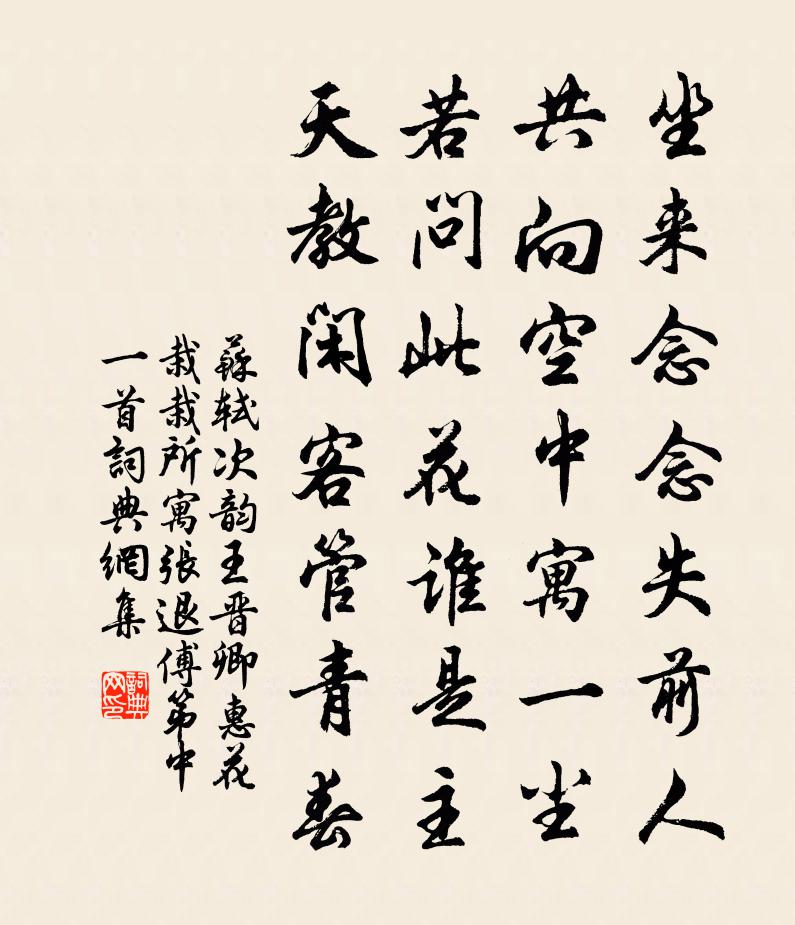 坐来念念失前人
共向空中寓一尘
若问此花谁是主
天教闲客管青春
蘇轼次韵王晋卿惠花
栽栽所寓張退傅第中
一首詞典網集
詞典
网印